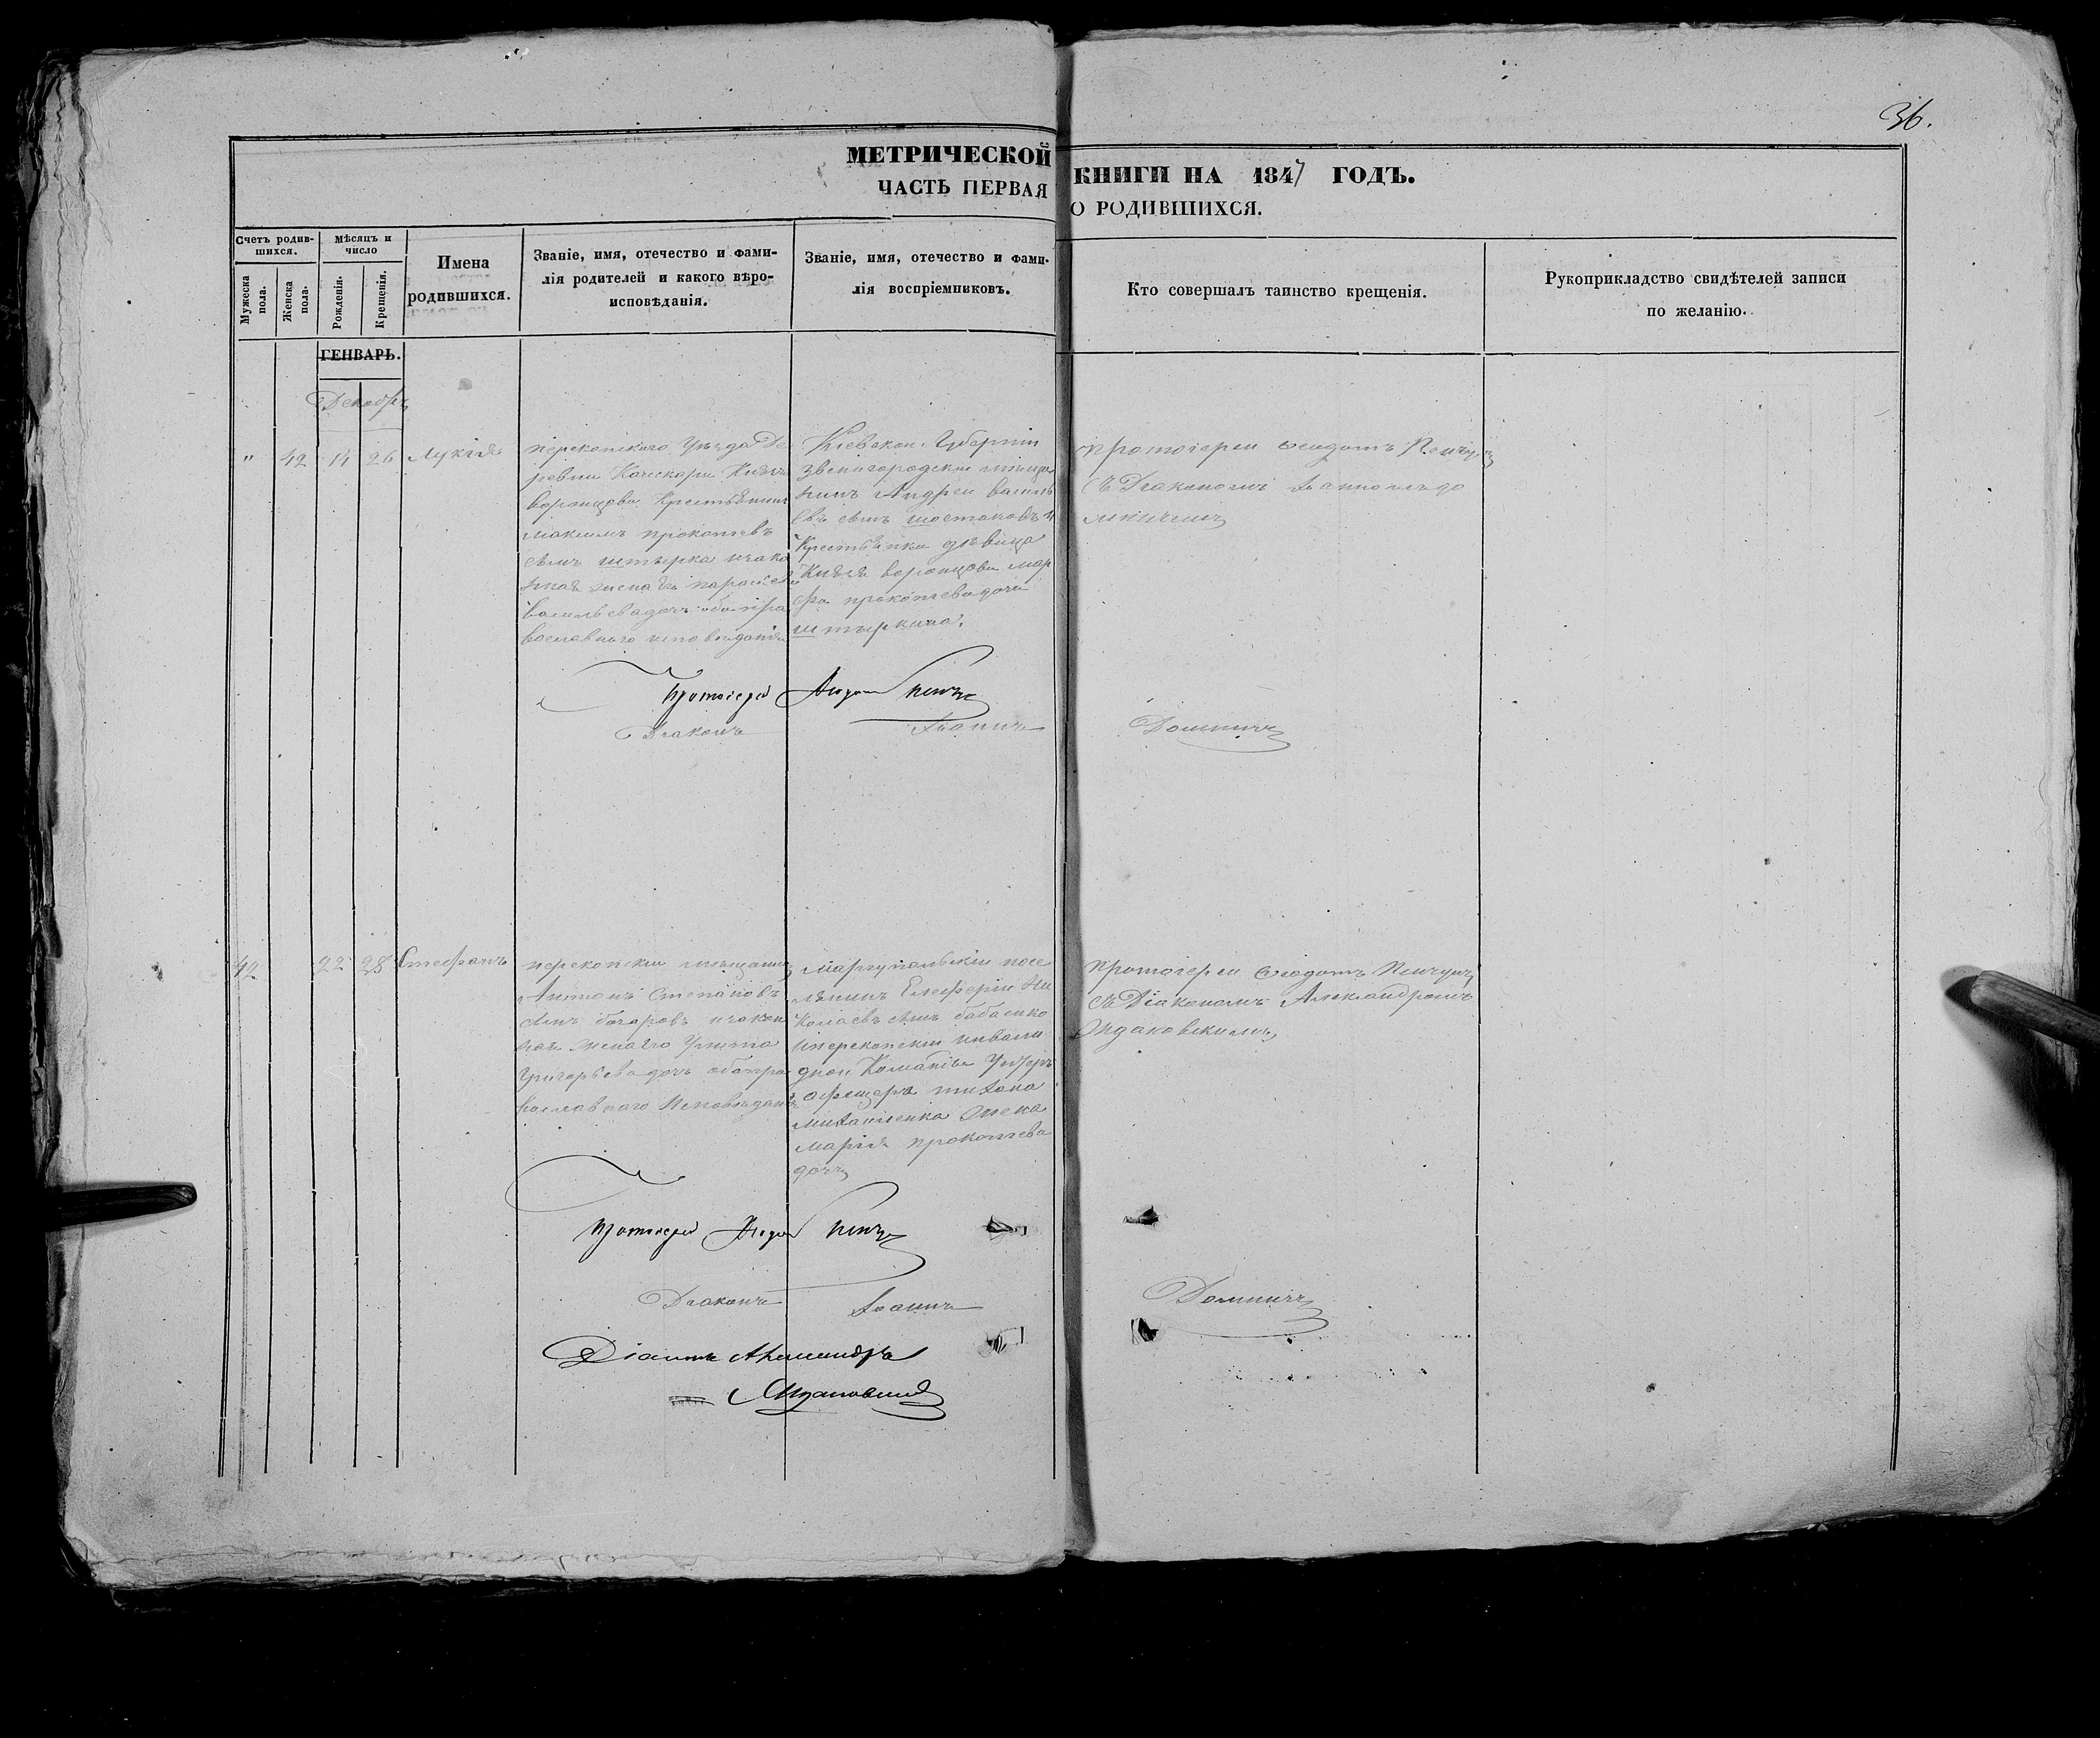 36.
МЕТРИЧЕСКОЙ КНИГИ НА 1847 ГОДЪ.
ЧАСТЬ ПЕРВАЯ О РОДИВШИХСЯ.
Счетъ родив-
шихся.
Мужеска
пола.
Женска
пола.
Мѣсяцъ и
число
Рожденія.
Крещенія.
Имена
родившихся.
Званіе, имя, отечество и фами-
лія родителей и какого вѣро-
исповѣданія.
Званіе, имя, отечество и фами-
лія воспріемниковъ.
Кто совершалъ таинство крещенія.
Рукоприкладство свидѣтелей записи
по желанію.
ГЕНВАРЬ.
Декабрь
" 42 14 26 Лукія
перекопского Уѣзда Де
ревни Князя
воронцова Крестьянинъ
Максимъ прокопіевъ
сынъ штырка изако
ная жена его параскева
васильева дочь оба пра
вославного исповѣданія
Кіевской Губерніи
звенигородскій мѣща
нинъ Андрей василь
евъ сынъ шостаковъ и
Крестьянка дѣвица
Князя воронцова мар
фа прокопіева дочь
штыркина.
протоіерей Феодотъ
съ Діакономъ Іанномъ до
Протоіерей
Діаконъ Іоаннъ
42 22 28 Стефанъ
перекопскій мѣщанинъ
Антонъ Степановъ
сынъ бочаровъ изакон
ная жена его Улита
Григорьева дочь оба пра
вославнаго Исповѣданія
маріупольскій посе
лянинъ Елеферій Ни
колаевъ сынъ
иперекопскій инвали
дной Команды Унтеръ
офицера тихона
жена
марія прокопіева
дочь
протоіерей Феодотъ
съ Діакономъ Александромъ
Протоіерей
Діаконъ Іоаннъ
Діаконъ Александръ